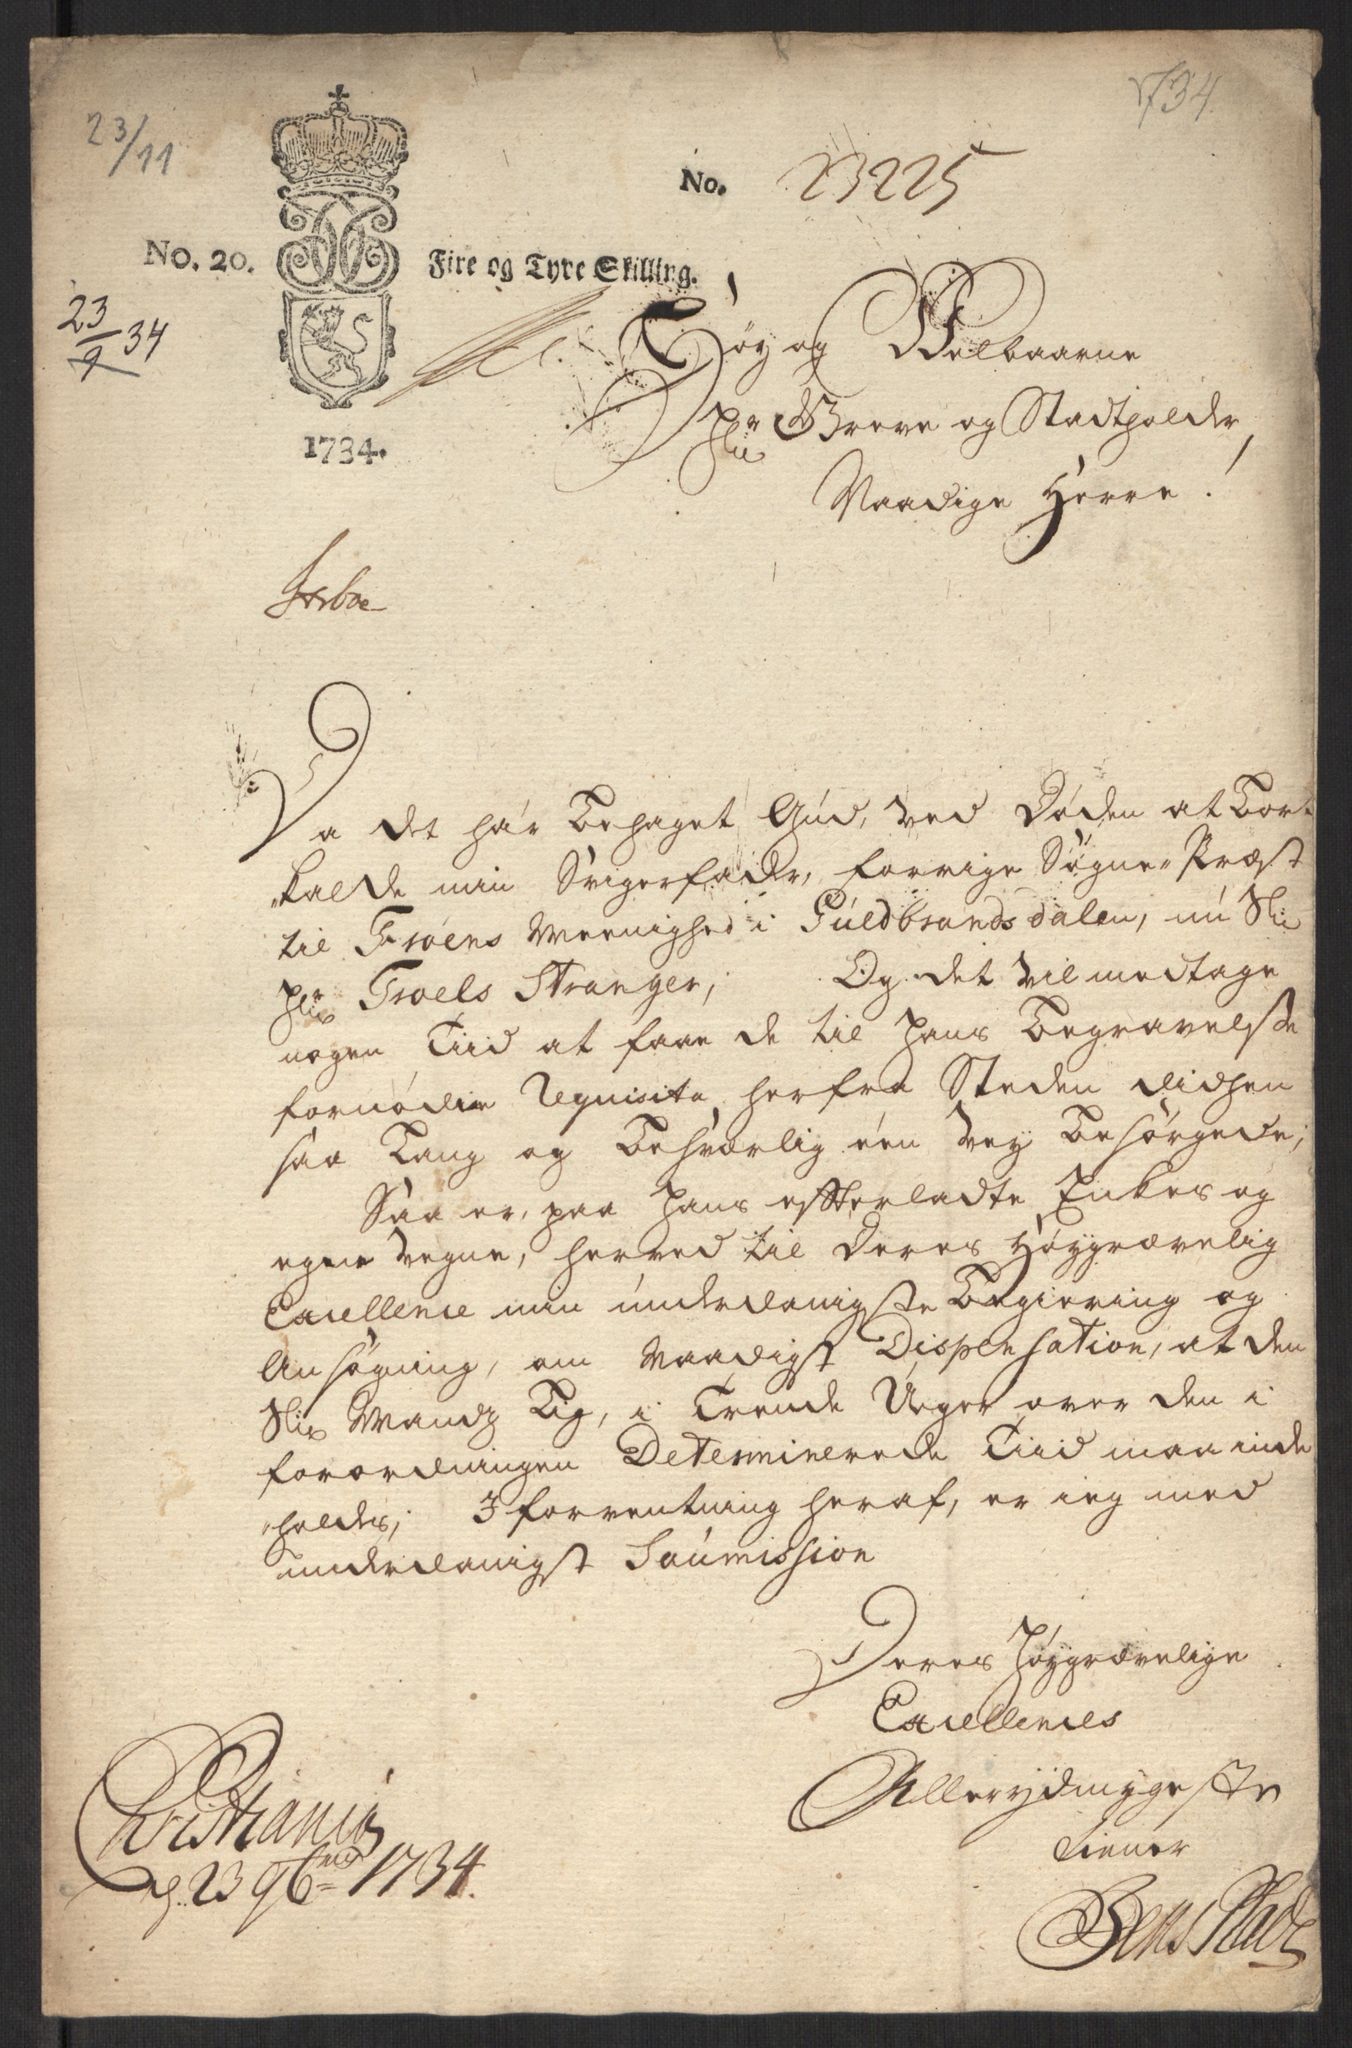 1734
23/11
No. 23225
No. 20. Fire og Tyve Skilling.
23/9 34
1734.
Høy og Welbaarne
Hr Greve og Stadtholder,
Naadige Herre!
Da det har behaget Gud, ved Døden at bort
kalde min Svigerfader, forrige Sogne-Præst
til Froens Meenighed i Guldbrandsdalen, nu Sl:
Hr Troels Stranger; Og det vil medtage
nogen Tiid at faae de til hans Begravelse
fornødne Requisita herfra Steden didhen
saa lang og besværlig een Vey besørgede;
Saa er, paa hans efterladte Enkes og
egne Vegne, herved til Deres Høygrævelig
Excellence min underdanigste Begiering og
Ansøgning, om Naadigst Dispensation, at den
Sl: Mands Lig, i Trende Uger over den i
forordningen Determinerede Tiid maa inde
holdes; I forventning heraf, er ieg med
underdanigst Soumission
Deres Høygrævelige
Excellences
Allerydmygeste
tiener
Christiania
d. 23 9bris 1734.